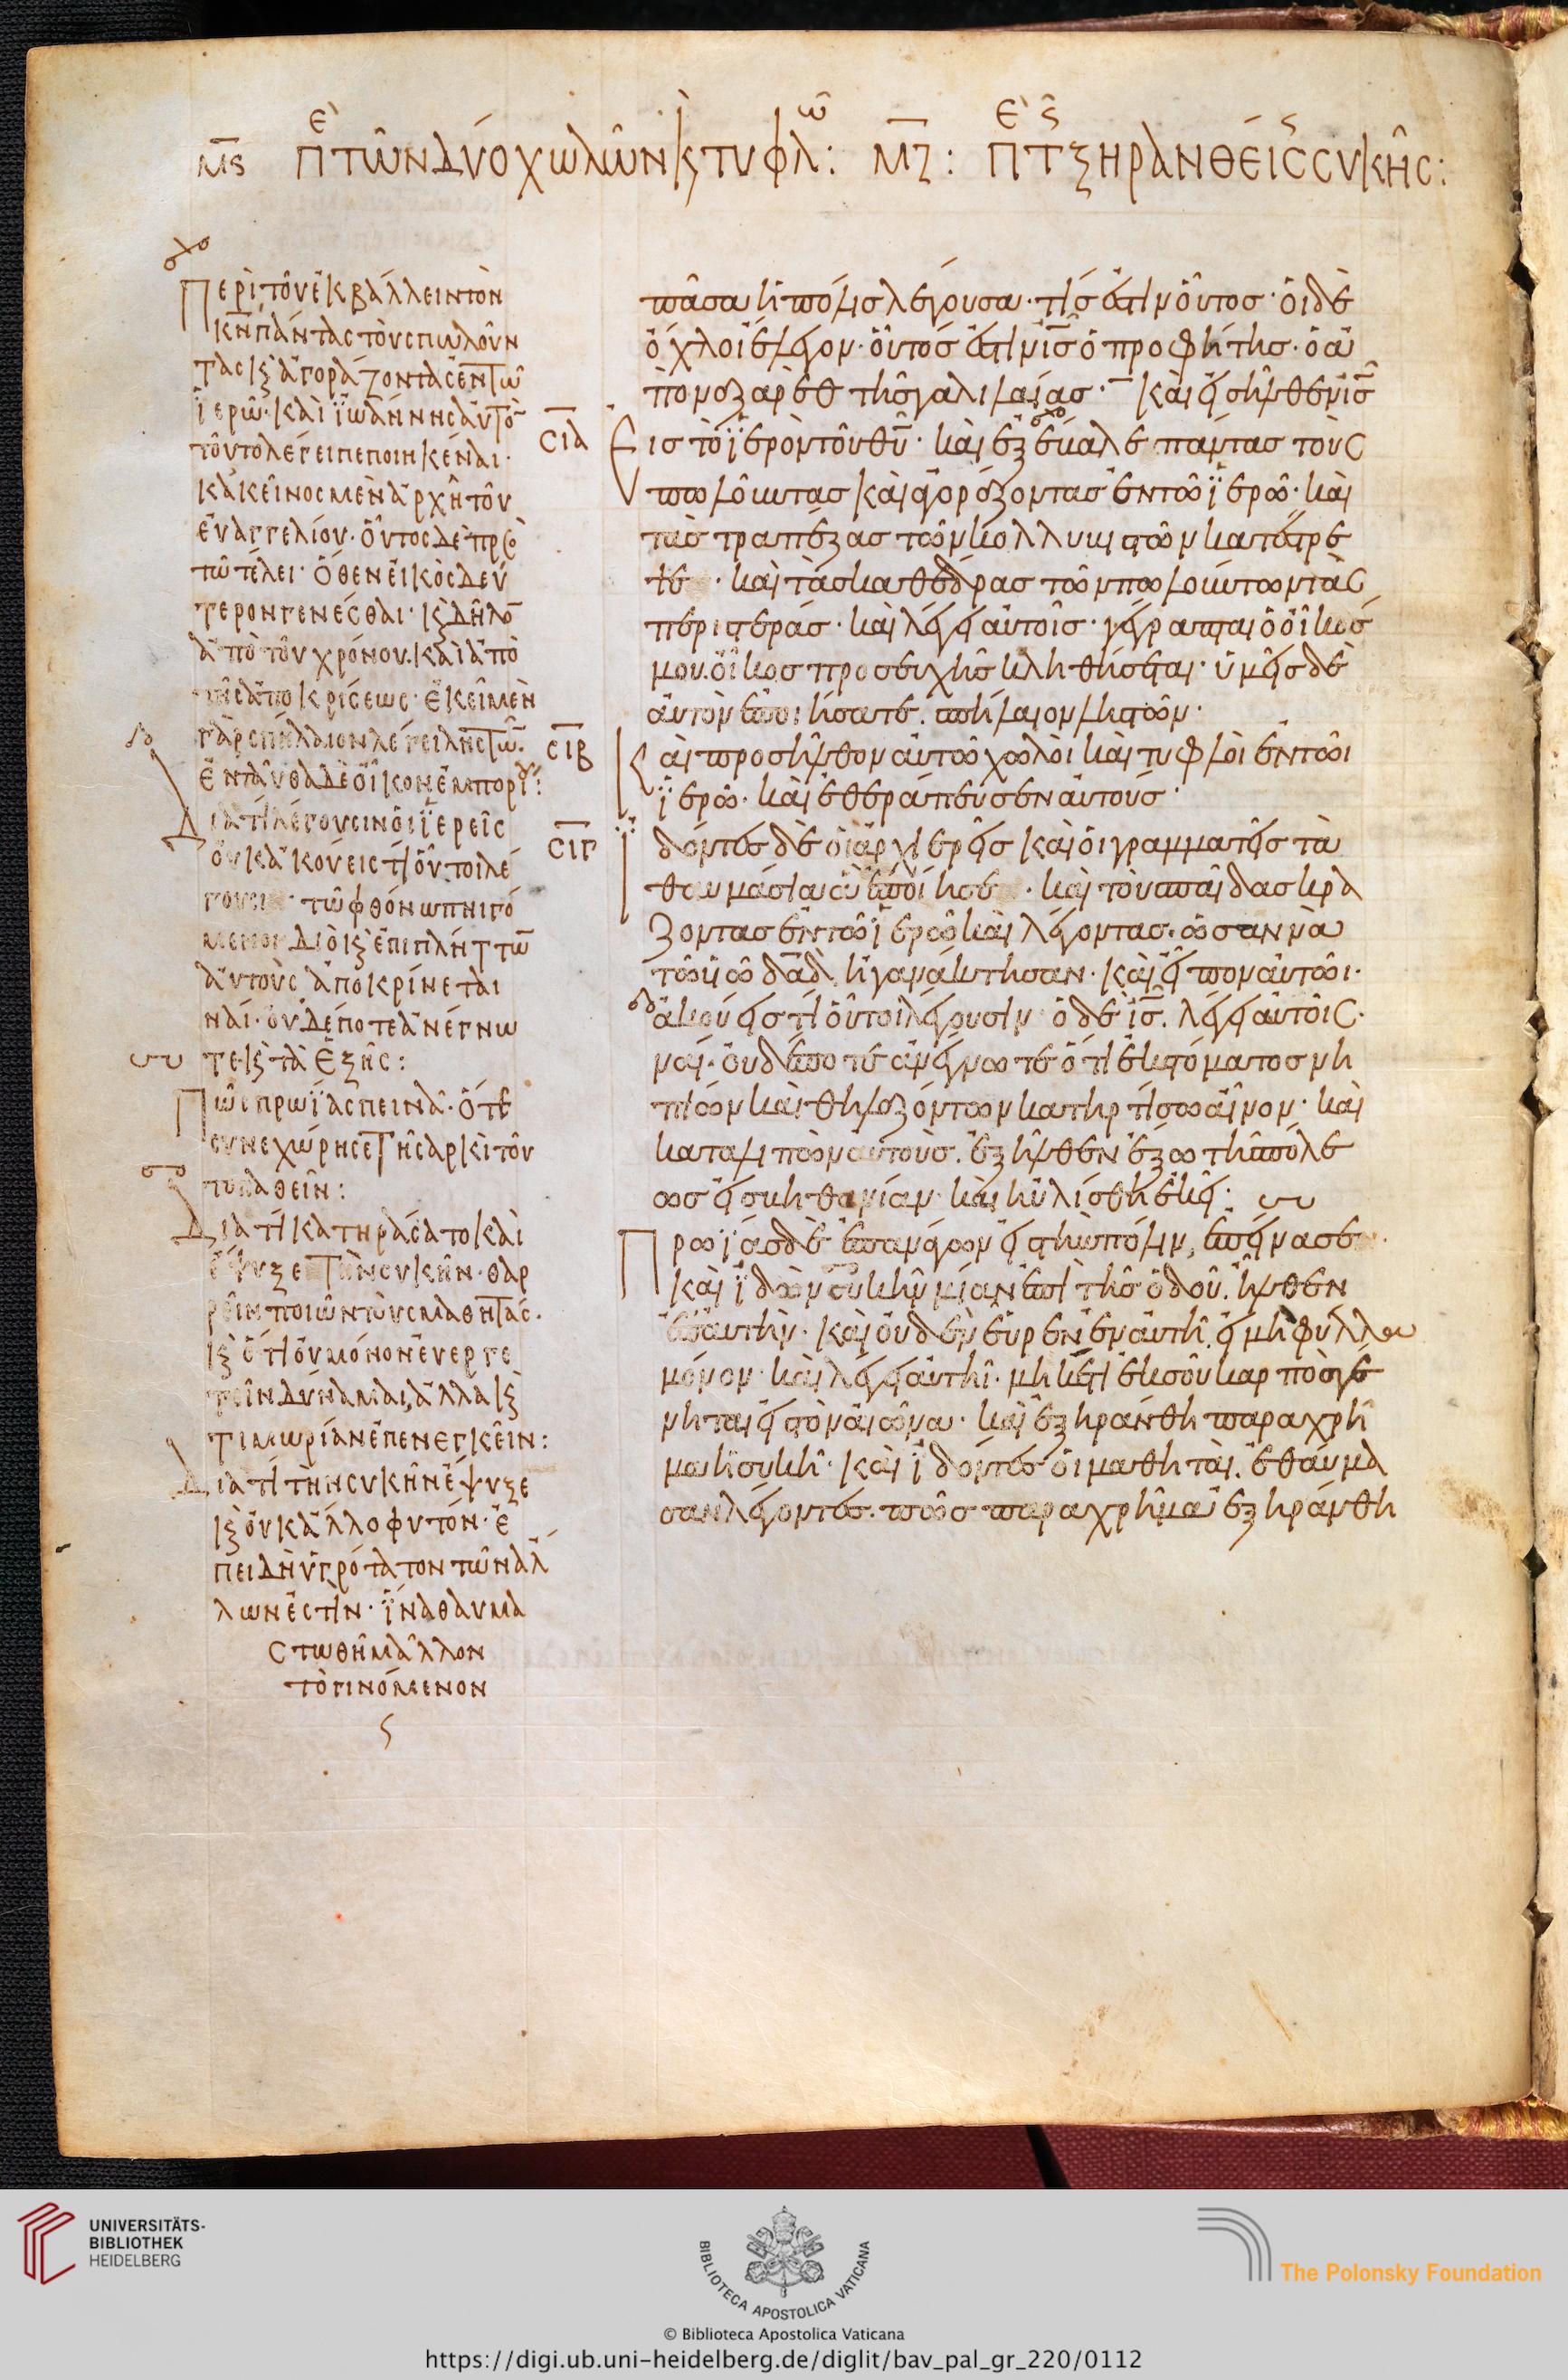 μϛ πε τῶν δύο χωλῶν κ τυφλῶ: μζ: πε τς ξηρανθείσς συκῆς:
Περὶ τοῦ ἐκβάλλειν τὸν
κν πάντας τοὺς πωλοῦν
τας κ ἀγοράζοντας ἐν τῶ
ἱερῶ· καὶ ἰωάννης αὐτὸ
τοῦτο λέγει πεποιηκέναι·
κἀκεῖνος μὲν ἀρχῆ τοῦ
εὐαγγελίου· οὗτος δὲ πρὸ
τῶ τέλει· ὅθεν εἰκὸς δεύ
τερον γενέσθαι· κ δῆλο
ἀπὸ τοῦ χρόνου. καὶ ἀπὸ
τῆς ἀποκρίσεως· ἐκεῖ μὲν
γὰρ σπήλαιον λέγει ληστῶ.
ἐνταῦθα δὲ οἶκον ἐμπορί:
Διατί λέγουσιν οἱ ἱερεῖς
οὐκ ἀκούεις τί οὗτοι λέ
γουσι· τῶ φθόνω πνιγό
μενοι διὸ κ ἐπιπλήττω
αὐτοὺς ἀποκρίνεται
ναί· οὐδέποτε ἀνέγνω
τε κ τὰ ἑξῆς:
Πῶς πρωΐας πεινᾶ· ὅτε
συνεχώρησε τῆ σαρκὶ τοῦ
το παθεῖν:
Διατί κατηράσατο καὶ
ἔψυξε τὴν συκῆν· θαρ
ρεῖν ποιῶν τοὺς μαθητάς·
κ ὅτι οὐ μόνον εὐεργε
τεῖν δύναμαι, ἀλλὰ κ
τιμωρίαν ἐπενεγκεῖν:
Διατί τὴν συκῆν ἔψυξε
κ οὐκ ἄλλο φυτόν· ἐ
πειδὴ ὑγρότατον τῶν ἀλ
λων ἐστίν· ἵνα θαυμα
στωθῆ μᾶλλον
τὸ γινόμενον
πᾶσα ἡ πόλις λέγουσα· τίς ἐστιν οὗτος· οἱ δὲ
ὄχλοι ἔλεγον· οὗτός ἐστιν ις ὁ προφήτης· ὁ ἀ
πο ναζαρὲθ τῆς γαλιλαίας· καὶ εἰσῆλθεν ις
σια Εἰς τὸ ἱερὸν τοῦ θυ· καὶ ἐξέβαλε πάντας τοὺς
πωλοῦντας καὶ ἀγοράζοντας ἐν τῶ ἱερῶ· καὶ
τὰς τραπέζας τῶν κολλυβιστῶν κατέστρε
ψε· καὶ τὰς καθέδρας τῶν πωλούντων τὰς
περιστεράς· καὶ λέγει αὐτοῖς· γέγραπται ὁ οἶκός
μου. οἶκος προσευχῆς κληθήσεται· ὑμεῖς δὲ
αὐτὸν ἐποιήσατε. σπήλαιον ληστῶν·
σιβ Καὶ προσῆλθον αὐτῶ χωλοὶ καὶ τυφλοὶ ἐν τῶι
ἱερῶ· καὶ ἐθεράπευσεν αὐτούς·
σιγ Ἰδόντες δὲ οἱ ἀρχιερεῖς καὶ οἱ γραμματεῖς τὰ
θαυμάσια ἃ ἐποίησε· καὶ τοὺς παῖδας κρά
ζοντας ἐν τῶ ἱερῶ καὶ λέγοντας· ὡσαννὰ
τῶ υἱῶ δαδ, ἠγανάκτησαν· καὶ εἶπον αὐτῶι·
ἀκούεις τί οὗτοι λέγουσιν· ὁ δὲ ις. λέγει αὐτοῖς·
ναί· οὐδέποτε ἀνέγνωτε ὅτι ἐκ στόματος νη
πίων καὶ θηλαζόντων κατηρτίσω αἶνον· καὶ
καταλιπὼν αὐτούς. ἐξῆλθεν ἔξω τῆς πόλε
ως εἰς βηθανίαν· καὶ ηὐλίσθη ἐκεῖ·
Πρωΐας δὲ ἐπανάγων εἰς τὴν πόλιν, ἐπείνασε·
καὶ ἰδὼν συκῆν μίαν ἐπὶ τῆς ὁδοῦ. ἦλθεν
ἐπ' αὐτὴν· καὶ οὐδὲν εὗρεν ἐν αὐτῆ. εἰ μὴ φύλλα
μόνον· καὶ λέγει αὐτῆ· μηκέτι ἐκ σοῦ καρπὸς γέ
νηται εἰς τὸν αἰῶνα· καὶ ἐξηράνθη παραχρῆ
μα ἡ συκῆ· καὶ ἰδόντες οἱ μαθηταὶ. ἐθαύμα
σαν λέγοντες. πῶς παραχρῆμα ἐξηράνθη
UNIVERSITÄTS-
BIBLIOTHEK
HEIDELBERG
BIBLIOTECA APOSTOLICA VATICANA
The Polonsky Foundation
© Biblioteca Apostolica Vaticana
https://digi.ub.uni-heidelberg.de/diglit/bav_pal_gr_220/0112